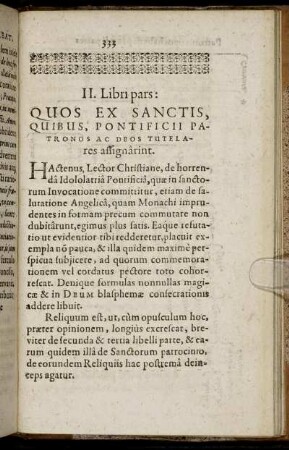 333
II. Libri pars:
QUOS EX SANCTIS,
QUIBUS, PONTIFICII PA-
TRONOS AC DEOS TUTELA-
res assignârint.
HActenus, Lector Christiane, de horren-
dâ Idololatriâ Pontificiâ, quæ in sancto-
rum Invocatione committitur, etiam de sa-
lutatione Angelicâ, quam Monachi impru-
dentes in formam precum commutare non
dubitârunt, egimus plus satis. Eaque refuta-
tio ut evidentior tibi redderetur, placuit ex-
empla nõ pauca, & illa quidem maximè per-
spicua subjicere, ad quorum commemorati-
onem vel cordatus pectore toto cohor-
rescat. Denique formulas nonnullas magi-
cæ & in DEUM blasphemæ consecrationis
addere libuit.
Reliquum est, ut, cùm opusculum hoc,
præter opinionem, longiùs excrescat, bre-
viter de secunda & tertia libelli parte, & ea-
rum quidem illâ de Sanctorum patrocinio,
de eorundem Reliquiis hac postremâ dein-
ceps agatur.